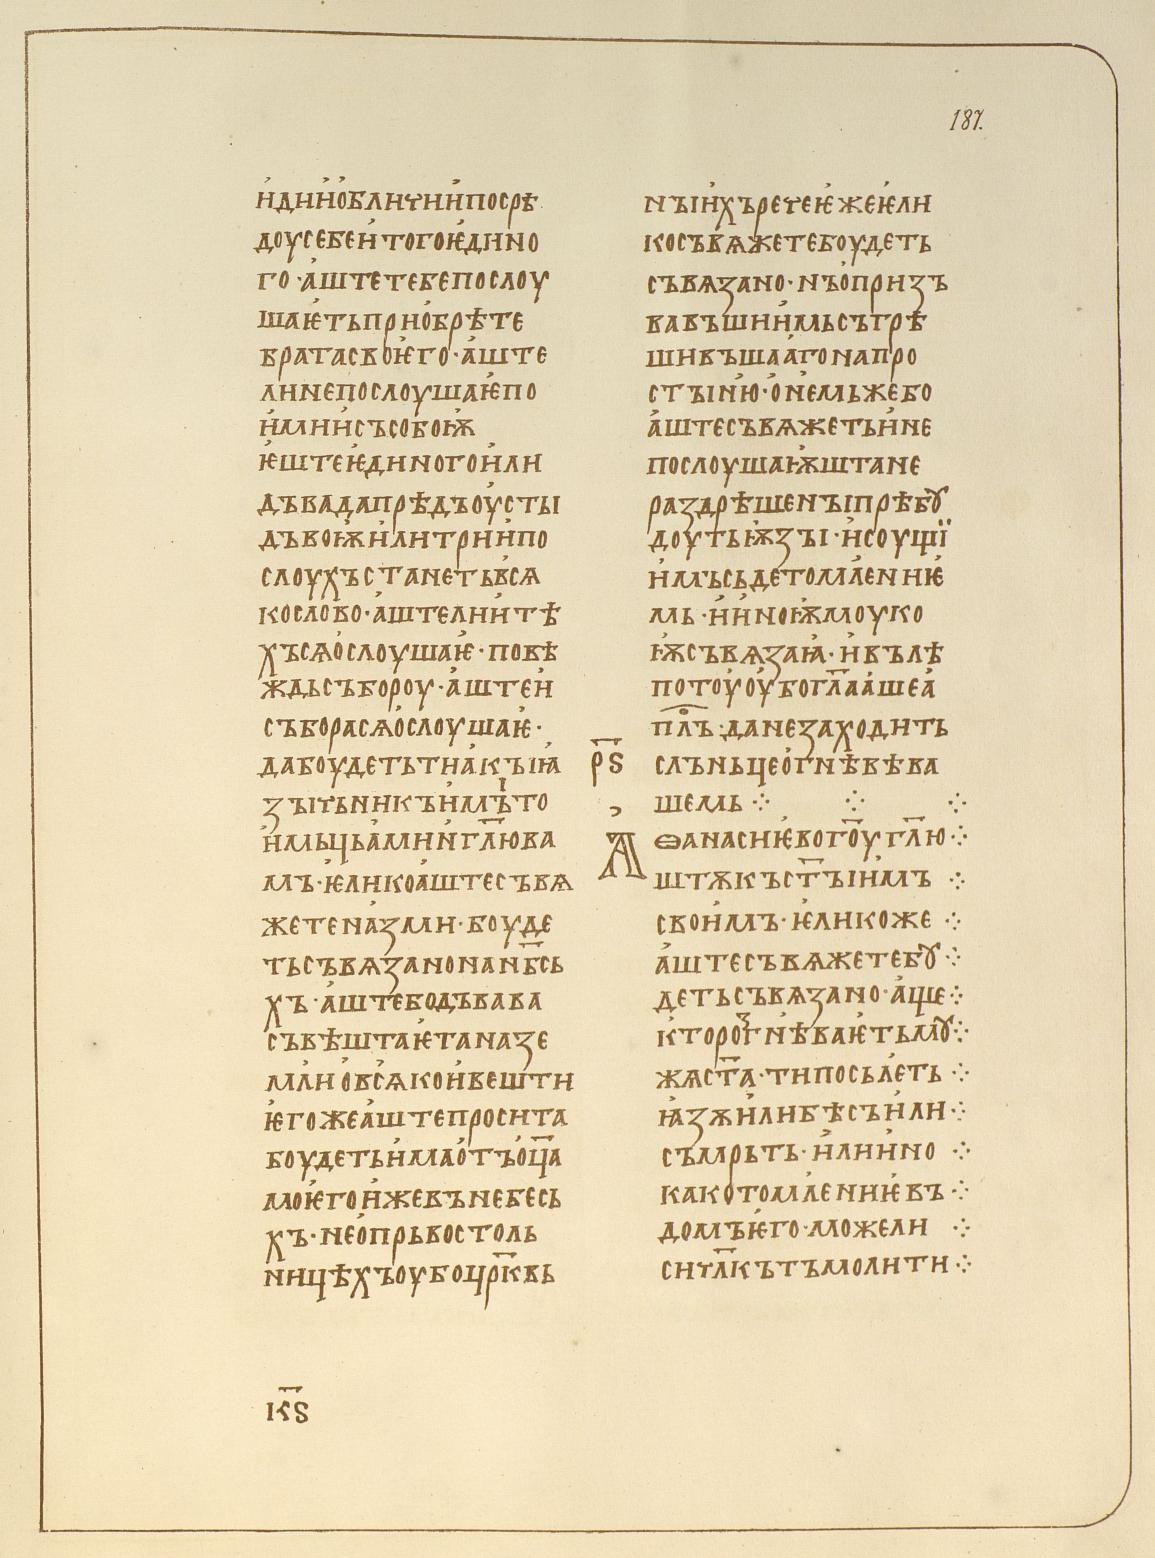 187.
и҆дии҆ ѻ҆бличии҆ посрѣ
доу себе и҆ того ѥ҆дино
го · а҆ште тебе послоу
шаѥ҆ть при о҆брѣте
брата своѥ҆го · а҆ште
ли не послоушаѥ҆ по
и҆ми и҆ съ собоѭ
ѥ҆ште ѥ҆диного и҆ли
дъва да прѣдъ оу҆сты
дъвоѭ и҆ли трии҆ по
слоухъ станеть вс҆ѧ
ко слово · а҆ште ли и҆ тѣ
хъ сѧ о҆слоушаѥ҆ · повѣ
ждь съброу · а҆ште и҆
събора сѧ о҆слоушаѥ҆ ·
да боудеть ти а҆кы ꙗ҆
зычьникъ и҆ мꙑто
и҆мьць а҆мин҆ гл҃ю ва
мъ · ѥ҆лико а҆ште съвѧ
жете на ꙁми · боуде
ть съвѧꙁано на нб҃сь
хъ · а҆ште бо дъва ва
съвѣштаѥ҆та на ꙁе
мли о҆ вс҆ѧкои҆ вешти
ѥ҆гоже а҆ште просита
боудеть и҆ма о҆тъ о҆ц҃а
моѥ҆го и҆же въ небесь
хъ · не о҆ прьвостоль
ницѣхъ оу҆бо цр҃квь
к҃ѕ
ныи҆хъ рече ѥ҆же ѥ҆ли
ко съвѧжете боудеть
съвѧꙁано · нъ о҆ приꙁъ
вавъшии҆мь съгрѣ
шивъшаа҆го на про
стыню҆ · о҆ немьже бо
а҆ште съвѧжеть и҆ не
послоушаѭштане
раꙁдрѣшены прѣбꙋ
доуть ѭꙁы · и҆ соущї
и҆мъ сьде томлениѥ҆
мь · и҆ и҆ноѭ моуко
ѭ съвѧꙁаꙗ҆ · и҆ въ лѣ
потоу оу҆бо гл҃аа҆ше а҆
пл҃ъ · да не ꙁаходить
р҃ѕ слъньце о҆ гнѣвѣ ва
шемь ⁘ ⁘ ⁘
Аѳанасиѥ҆во го҃у гл҃ю ⁘
штѫ къ ст҃ыи҆мъ ⁘
свои҆мъ · ѥ҆ликоже ⁘
а҆ште съвѧжете бꙋ ⁘
деть съвѧꙁано · а҆ще ⁘
кто роꙁгнѣваѥ҆ть мꙋ ⁘
жѧ ст҃а · ти посьлеть ⁘
ꙗ҆ꙁѫ и҆ли бѣсъ и҆ли ⁘
съмрьть · и҆ли и҆но ⁘
како томлениѥ҆ въ ⁘
домъ ѥ҆го · може ли ⁘
си чл҃къ тъ молити ⁘